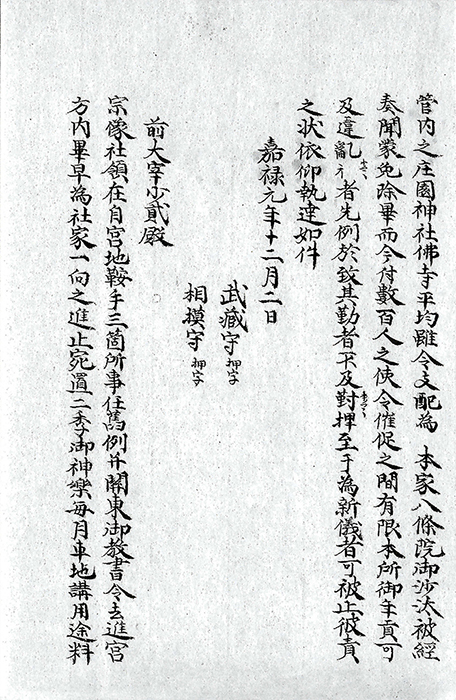 管内之庄園神社佛寺平均雖令支配為 本家八條院御沙汰被經
奏聞蒙免除畢而今付數百人之使令催促之間有限本所御年貢可
及違亂者先例於致其勤者不及對捍至于為新儀者可被止彼責
之状依仰執達如件
嘉禄元年十二月二日
武藏守 押字
相摸守 押字
前大宰少貳殿
宗像社領在自宮地鞍手三箇所事任舊例并關東御教書令去進宮
方内畢早為社家一向之進止宛置二季御神樂每月車地講用途料